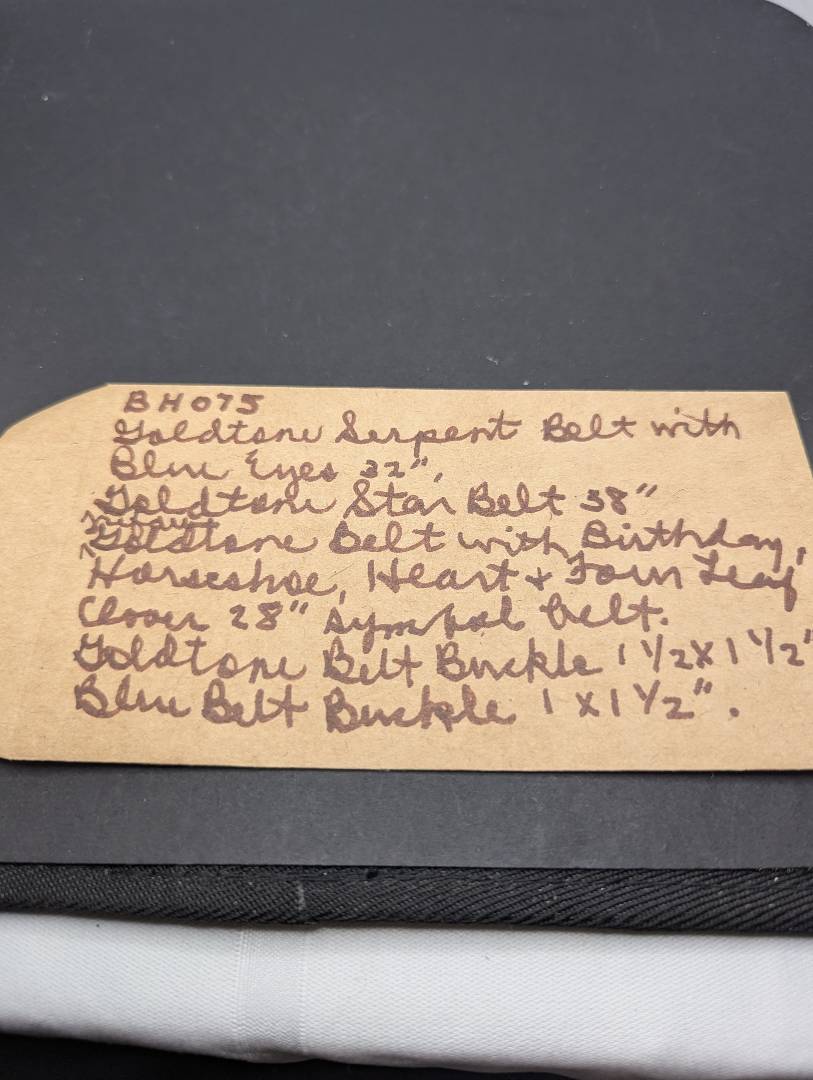 BH075
Goldtone Serpent Belt with
Blue Eyes 32",
Goldtone Star Belt 38"
Goldtone Belt with Birthday,
Horseshoe, Heart & Four Leaf
Clover 28" symbol belt.
Goldtone Belt Buckle 1 1/2 X 1 1/2"
Blue Belt Buckle 1 X 1 1/2".